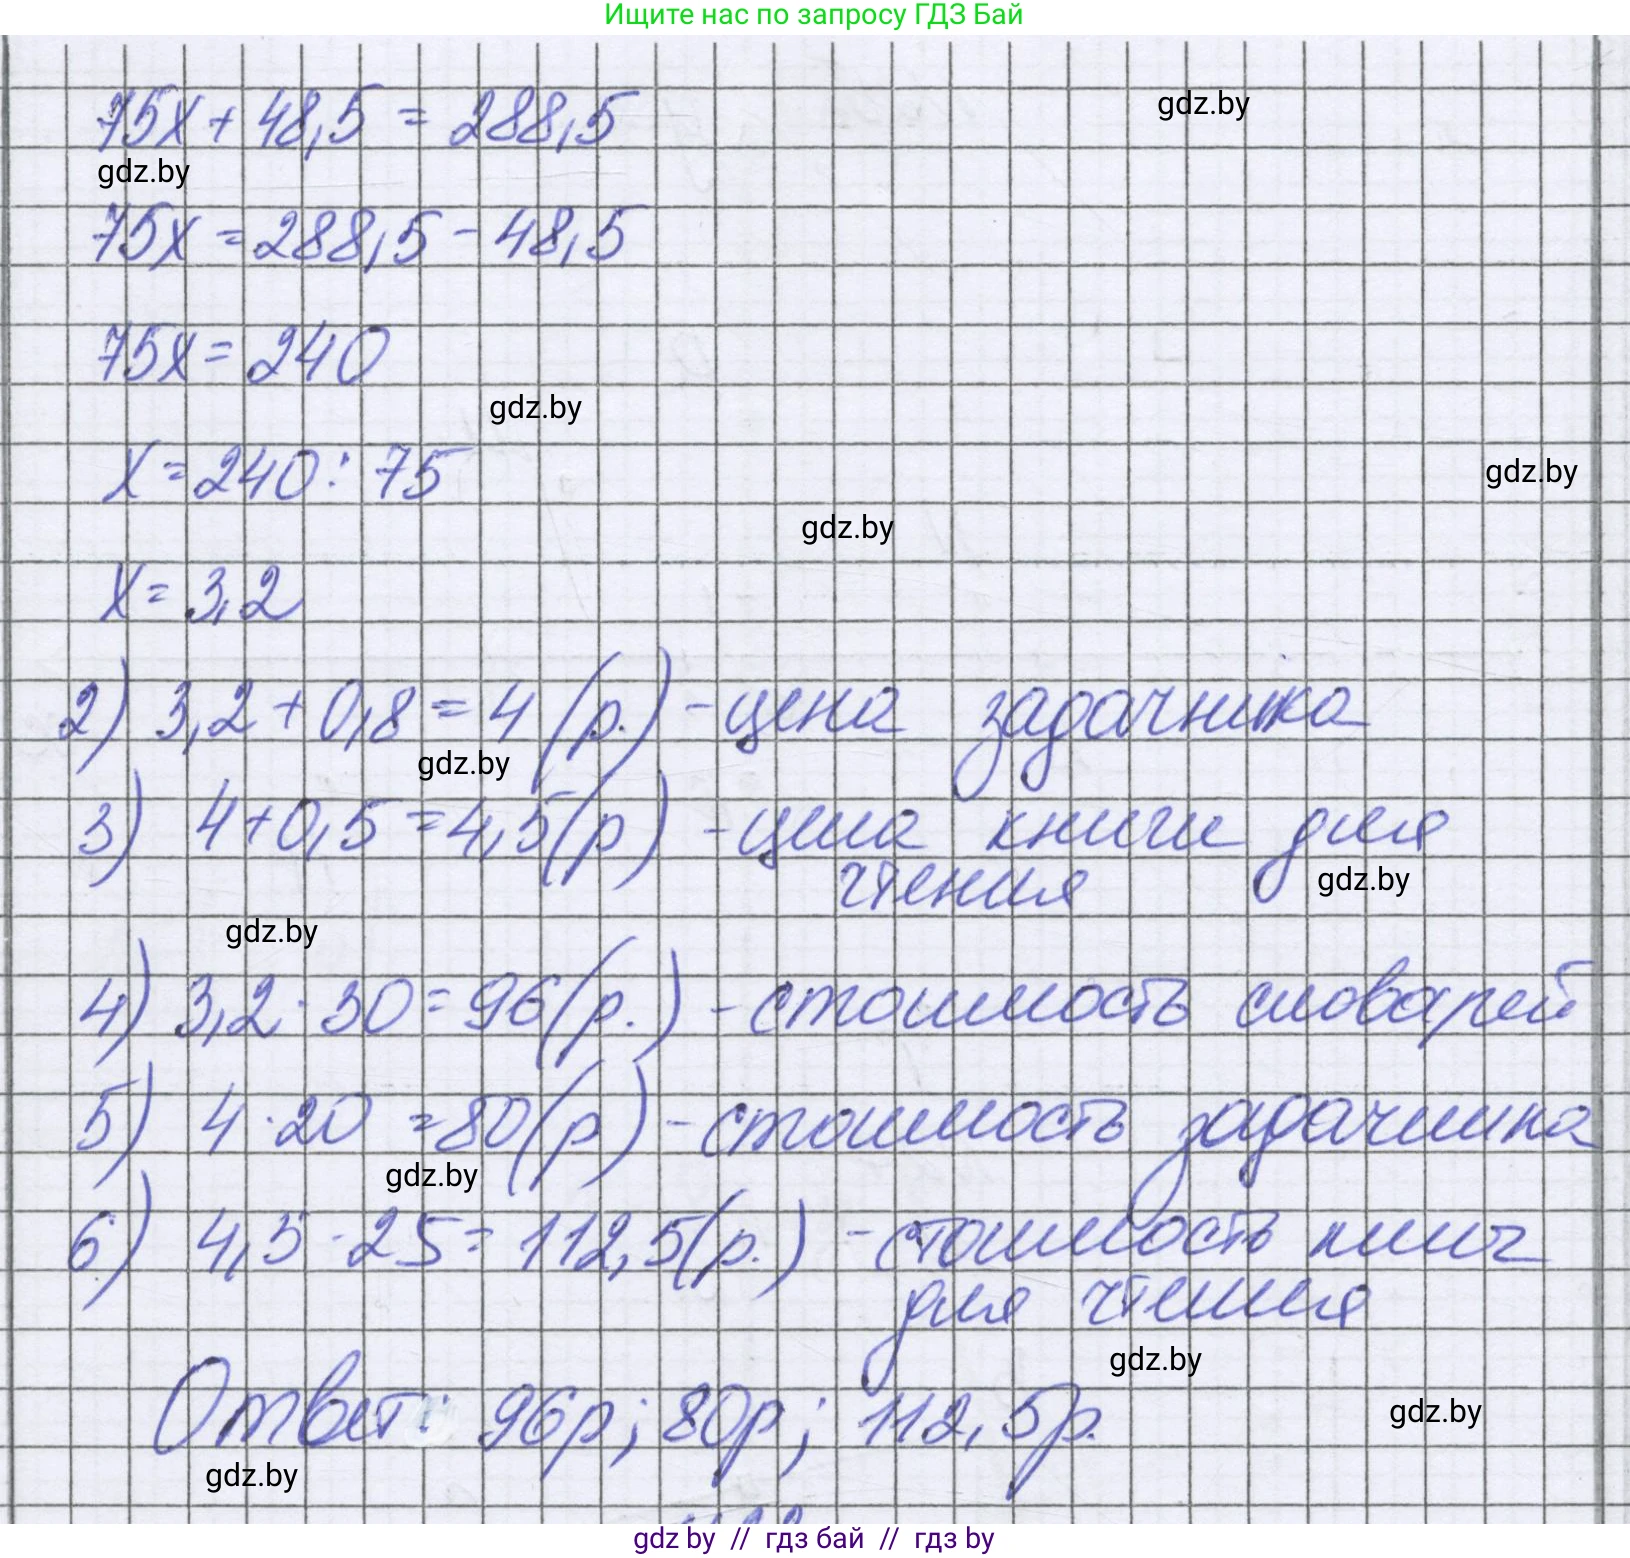 Ищите нас по запросу ГДЗ Бай
75x + 48,5 = 288,5
gdz.by
gdz.by
75x = 288,5 - 48,5
75x = 240
gdz.by
x = 240 : 75
gdz.by
gdz.by
x = 3,2
2) 3,2 + 0,8 = 4 (р.) - цена задачника
gdz.by
3) 4 + 0,5 = 4,5 (р) - цена книги для
чтения
gdz.by
gdz.by
4) 3,2 · 30 = 96 (р.) - стоимость словарей
5) 4 · 20 = 80 (р) - стоимость задачника
gdz.by
6) 4,5 · 25 = 112,5 (р.) - стоимость книг
для чтения
gdz.by
Ответ: 96р; 80р; 112,5р.
gdz.by
gdz.by
gdz by // гдз бай // гдз by